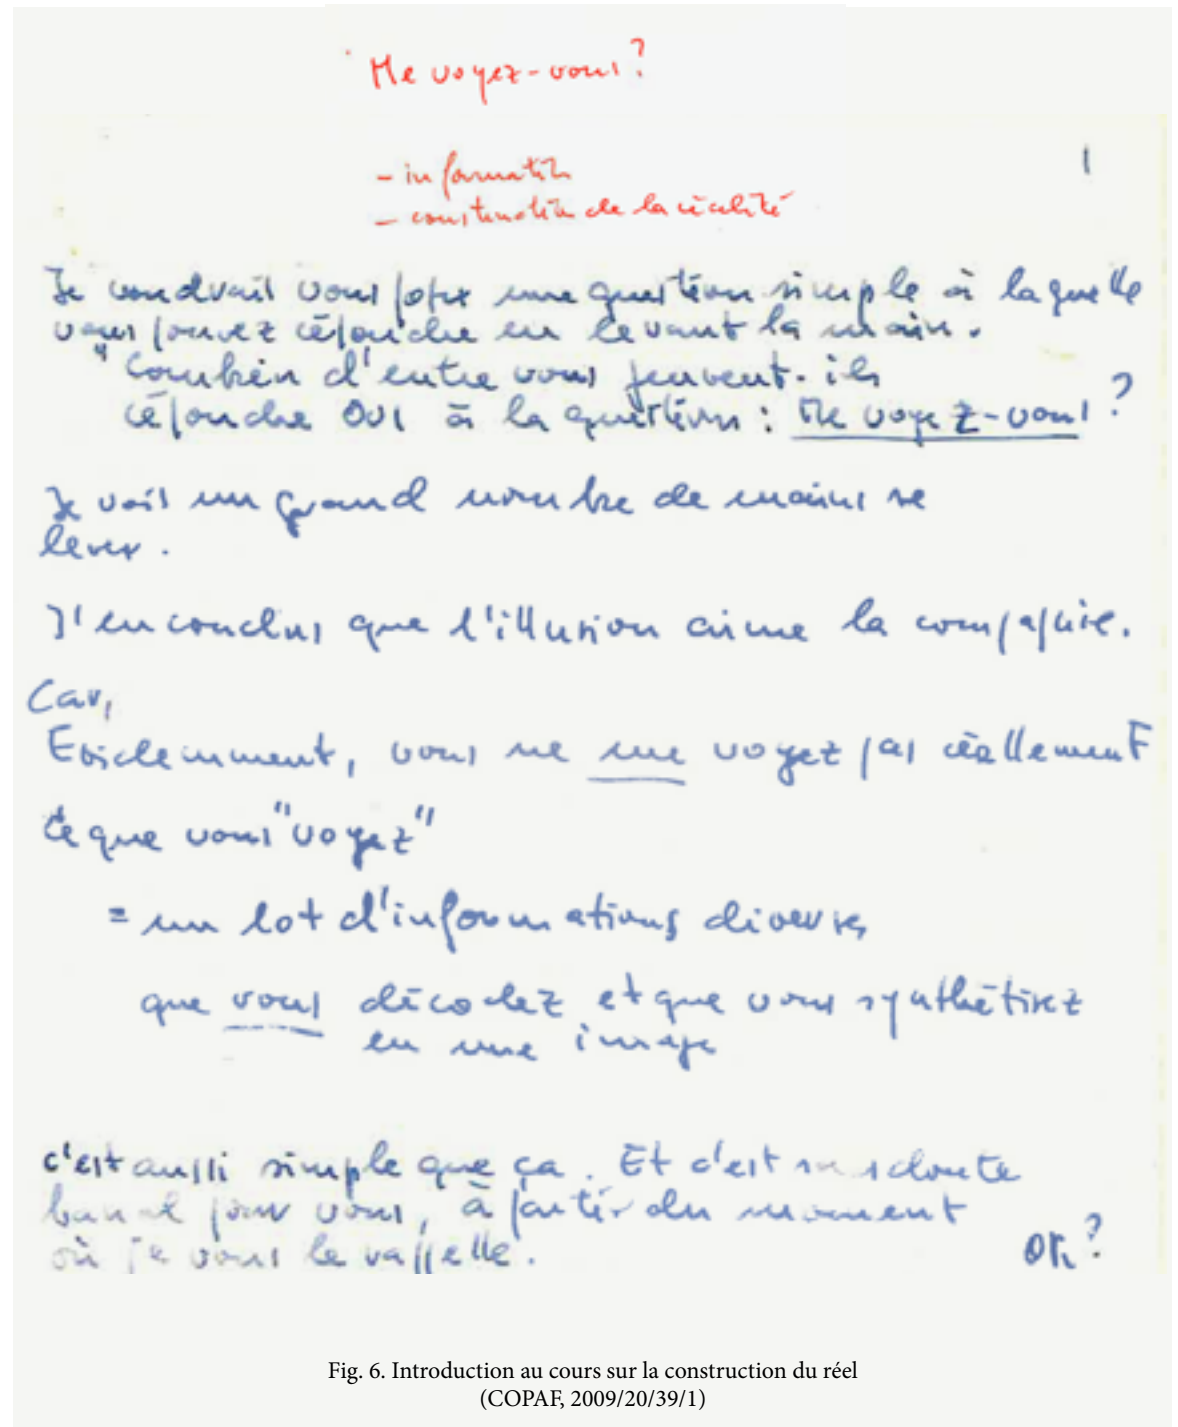 Me voyez-vous?
1
- information
- construction de la réalité
Je voudrais vous poser une question simple à laquelle
vous pouvez répondre en levant la main.
"Combien d'entre vous peuvent-ils
répondre OUI à la question : Me voyez-vous?
Je vois un grand nombre de mains se
lever.
J'en conclus que l'illusion aime la compagnie.
Car,
Evidemment, vous ne me voyez pas réellement
Ce que vous "voyez"
= un lot d'informations diverses
que vous décodez et que vous synthétisez
en une image
c'est aussi simple que ça. Et c'est sans doute
banal pour vous, à partir du moment
où je vous le rappelle.
OK?
Fig. 6. Introduction au cours sur la construction du réel
(COPAF, 2009/20/39/1)